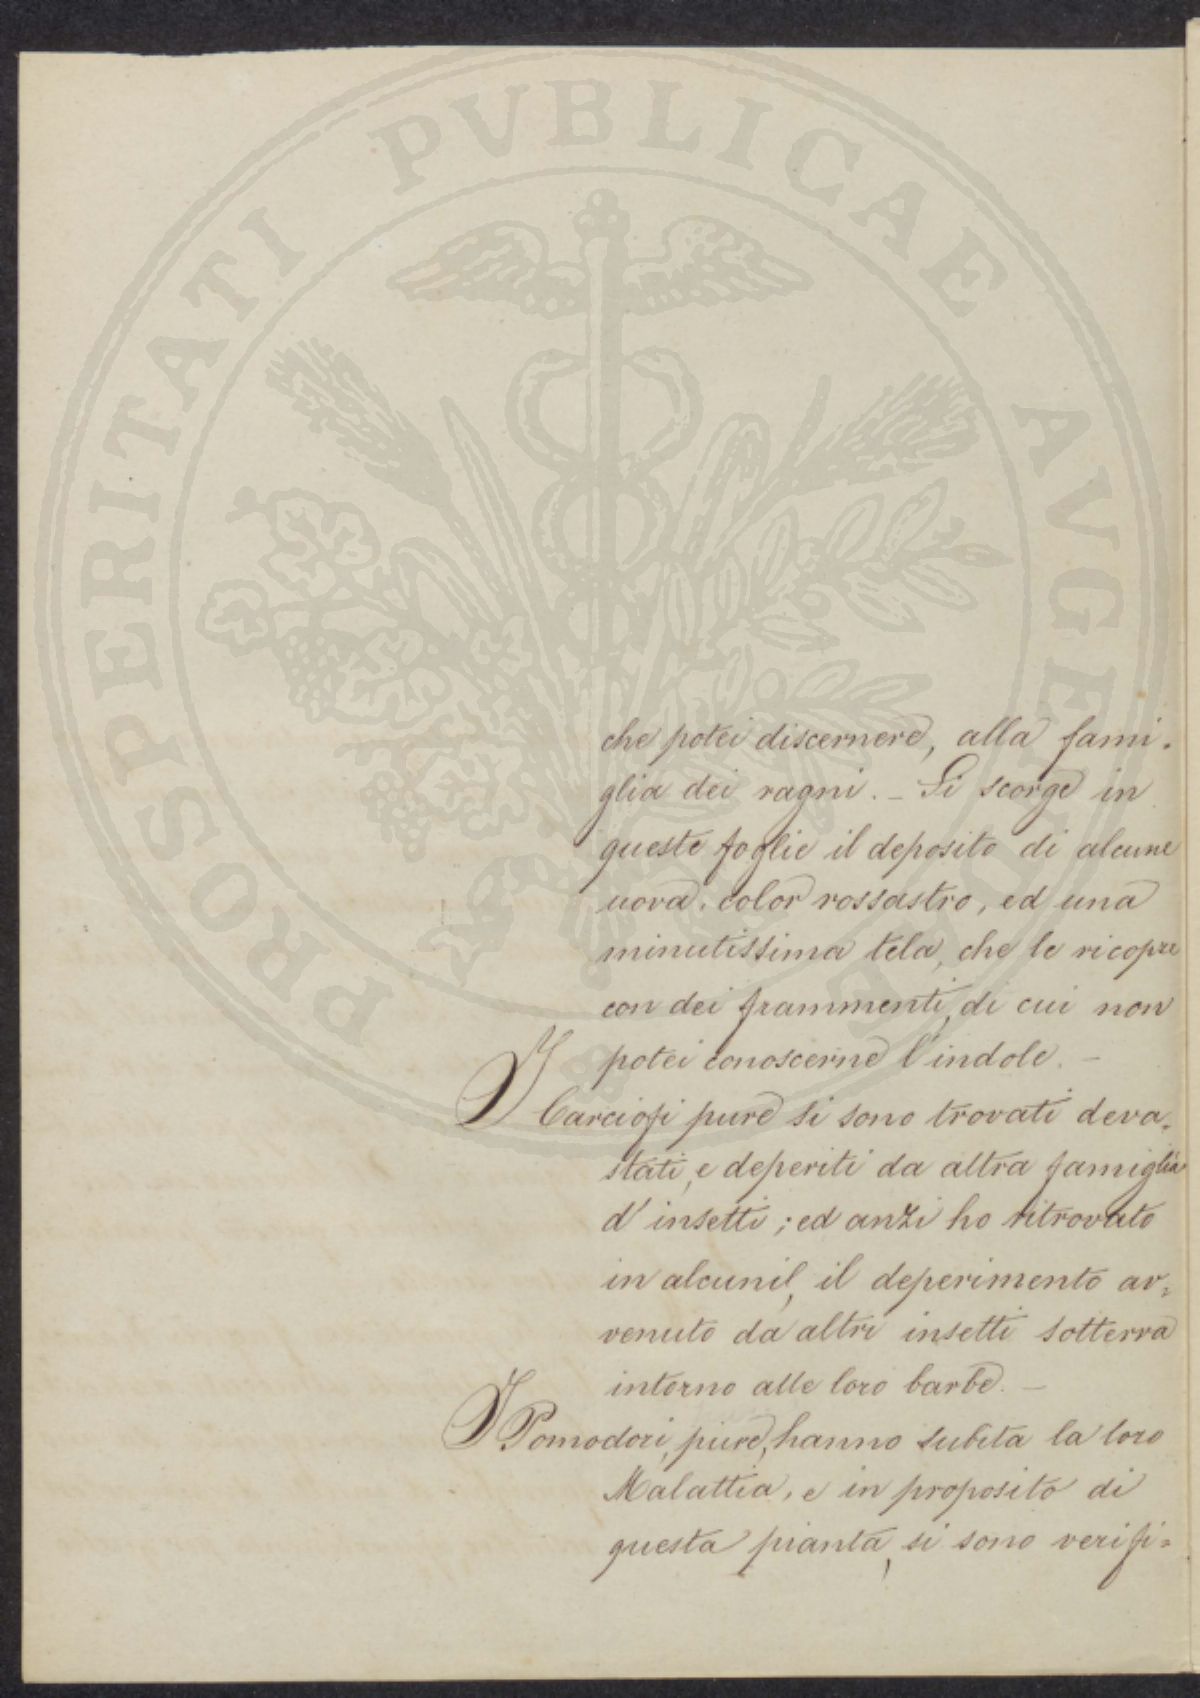 PROSPERITATI PVBLICAE AVGENDAE
che potei discernere, alla fami-
glia dei ragni. _ Si scorge in
queste foglie il deposito di alcune
uova, color rossastro, ed una
minutissima tela, che le ricopre
con dei frammenti, di cui non
potei conoscerne l'indole. _
I Carciofi pure si sono trovati deva=
stati, e deperiti da altra famiglia
d'insetti; ed anzi ho ritrovato
in alcuni, il deperimento av=
venuto da altri insetti sotterra
intorno alle loro barbe. _
I Pomodori, pure, hanno subita la loro
Malattia, e in proposito di
questa pianta, si sono verifi=